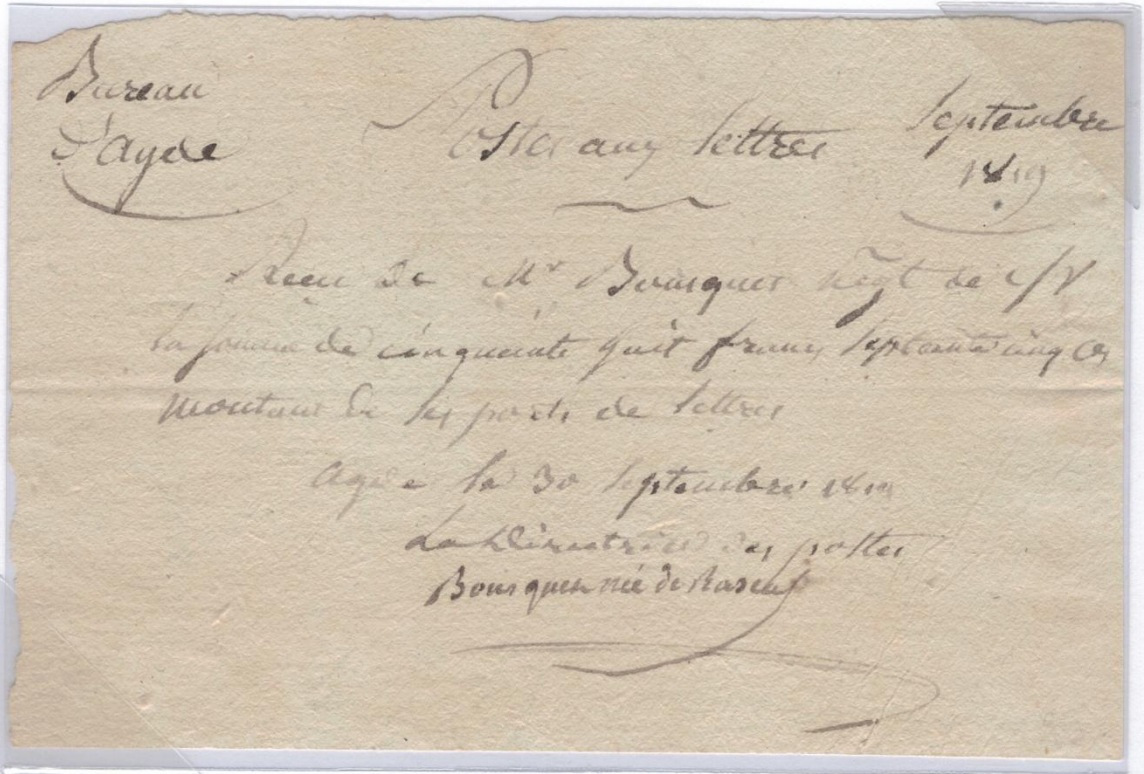 Bureau
D'agde
Postes aux lettres
Septembre
1819
Recu de Mr Bousquet negt de c/V
la somme de cinquante huit francs septante cinq Ces
montant de ses ports de lettres
agde le 30 septembre 1819
La Directrice des postes
Bousquet née de